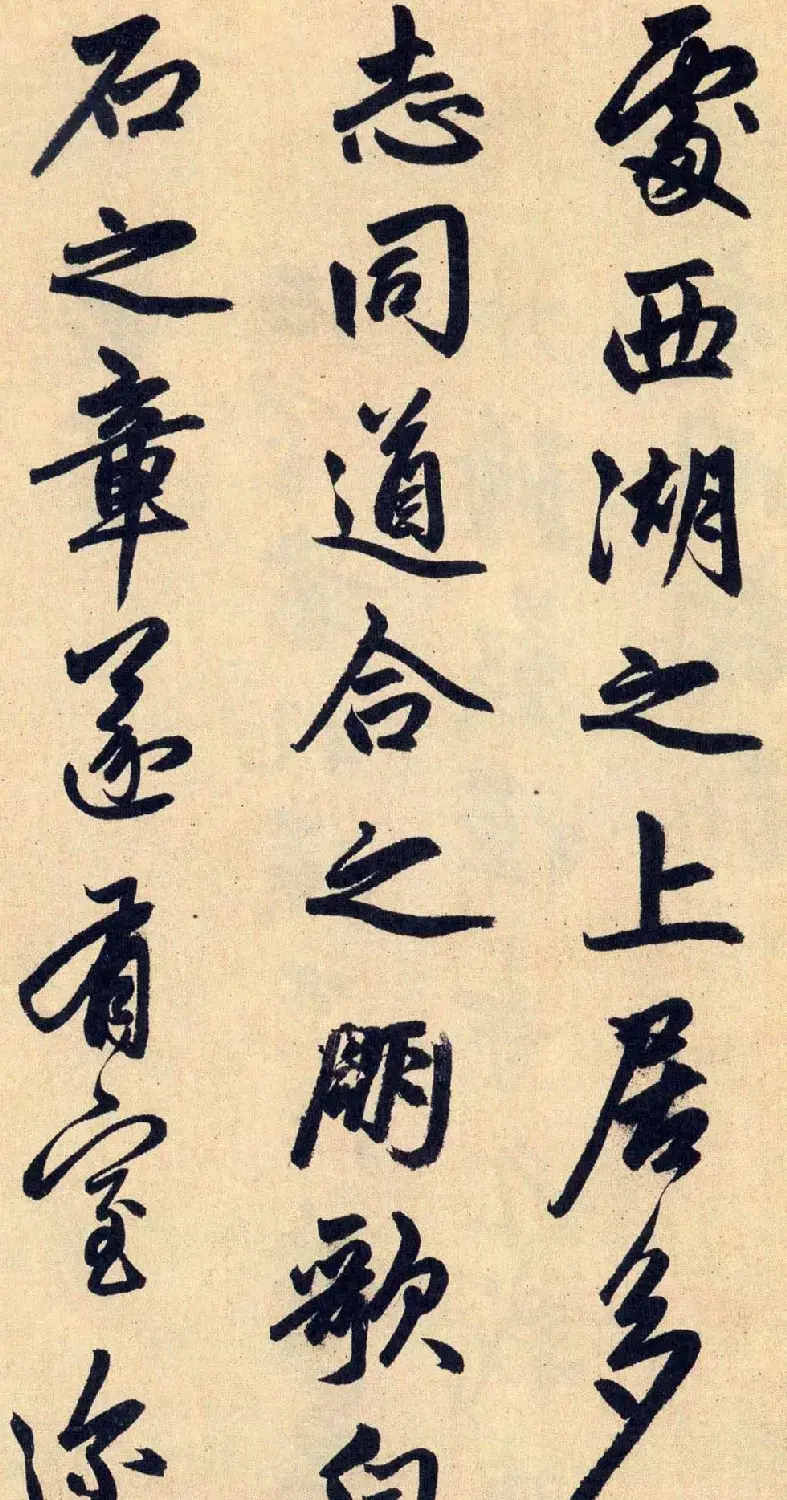 處西湖之上居多
志同道合之朋歌白
石之章遂有室深